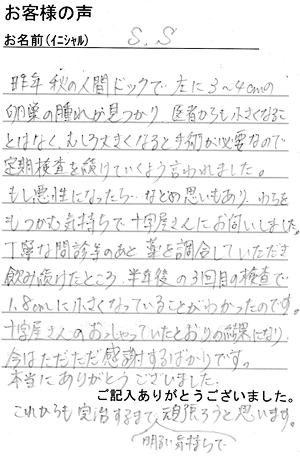 お客様の声
お名前(イニシャル) S.S
昨年 秋の人間ドックで 左に3~4cmの
卵巣の腫れが見つかり、医者からも小さくなるこ
とはなく、むしろ大きくなると手術が必要なので
定期検査を続けていくよう言われました。
もし悪性になったら‥などの思いもあり、わらを
もつかむ気持ちで十字屋さんにお伺いしました。
丁寧な問診等のあと 薬を調合していただき
飲み続けたところ、半年後の3回目の検査で
1.8cmに小さくなっていることがわかったのです。
十字屋さんのおっしゃっていたとおりの結果になり、
今はただただ感謝するばかりです。
本当にありがとうございました。
ご記入ありがとうございました。
これからも完治するまで、頑張ろうと思います。
明るい気持ちで